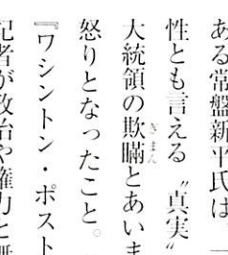 ある常盤新平氏は、
性とも言える〝真実〟
大統領の欺瞞とあいま
怒りとなったこと。
『ワシントン・ポスト
記者が政治や権力と無